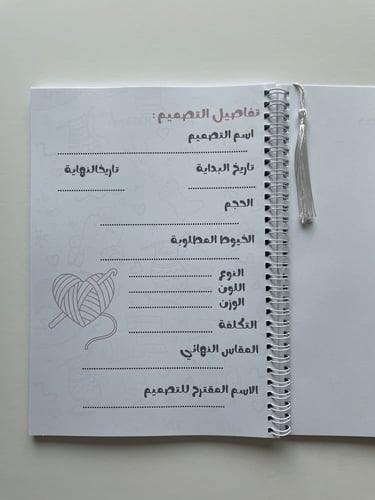 تفاصيل التصميم:
اسم التصميم
تاريخ البداية تاريخ النهاية
الحجم
الخيوط المطلوبة
النوع
اللون
الوزن
التكلفة
المقاس النهائي
الاسم المقترح للتصميم